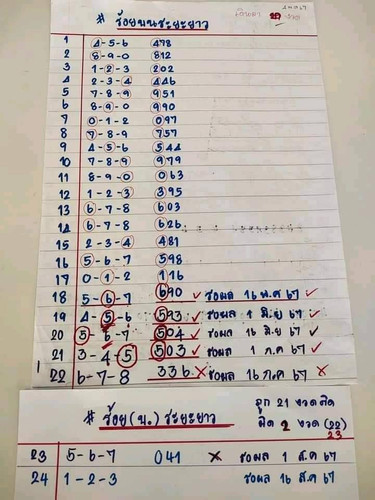 # ร้อยบนระยะยาว
1 4-5-6 478
2 8-9-0 812
3 1-2-3 202
4 2-3-4 446
5 7-8-9 951
6 8-9-0 990
7 0-1-2 097
8 7-8-9 757
9 4-5-6 544
10 7-8-9 979
11 8-9-0 063
12 1-2-3 395
13 6-7-8 603
14 6-7-8 626
15 2-3-4 481
16 5-6-7 598
17 0-1-2 116
18 5-6-7 690 ✓ รอผล 16 พ.ค 67 ✓
19 4-5-6 593 ✓ รอผล 1 มิ.ย 67 ✓
20 5-6-7 504 ✓ รอผล 16 มิ.ย 67 ✓
21 3-4-5 503 ✓ รอผล 1 ก.ค 67 ✓
22 6-7-8 336 × รอผล 16 ก.ค 67 ×
# ร้อย(บ.)ระยะยาว
ถูก 21 งวดติด
ผิด 2 งวด (22)
23
23 5-6-7 041 × รอผล 1 ส.ค 67
24 1-2-3 รอผล 16 ส.ค 67